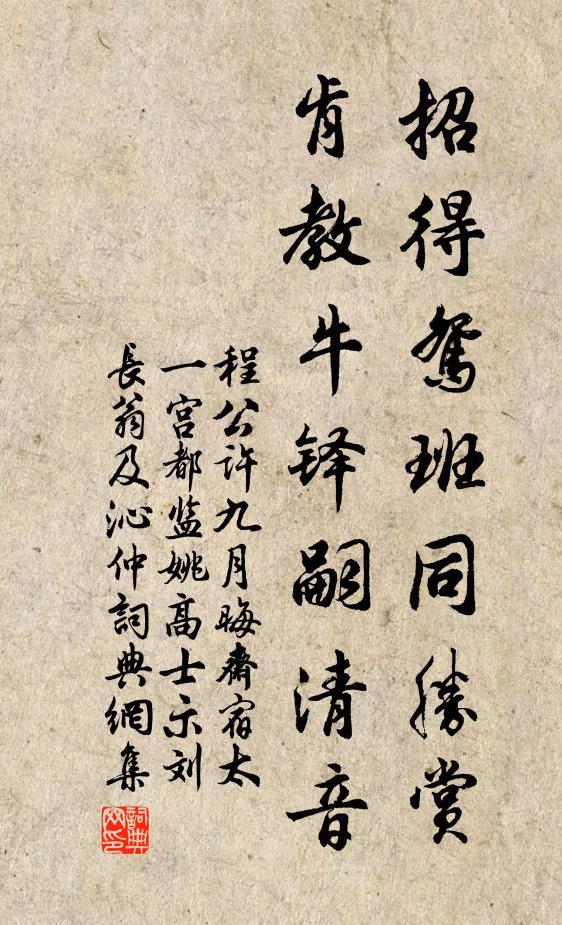 招得鴛班同勝赏
肯教牛铎嗣清音
程公许九月晦齋宿太
一宫都监姚高士示刘
長翁及沁仲詞典網集
詞典网印